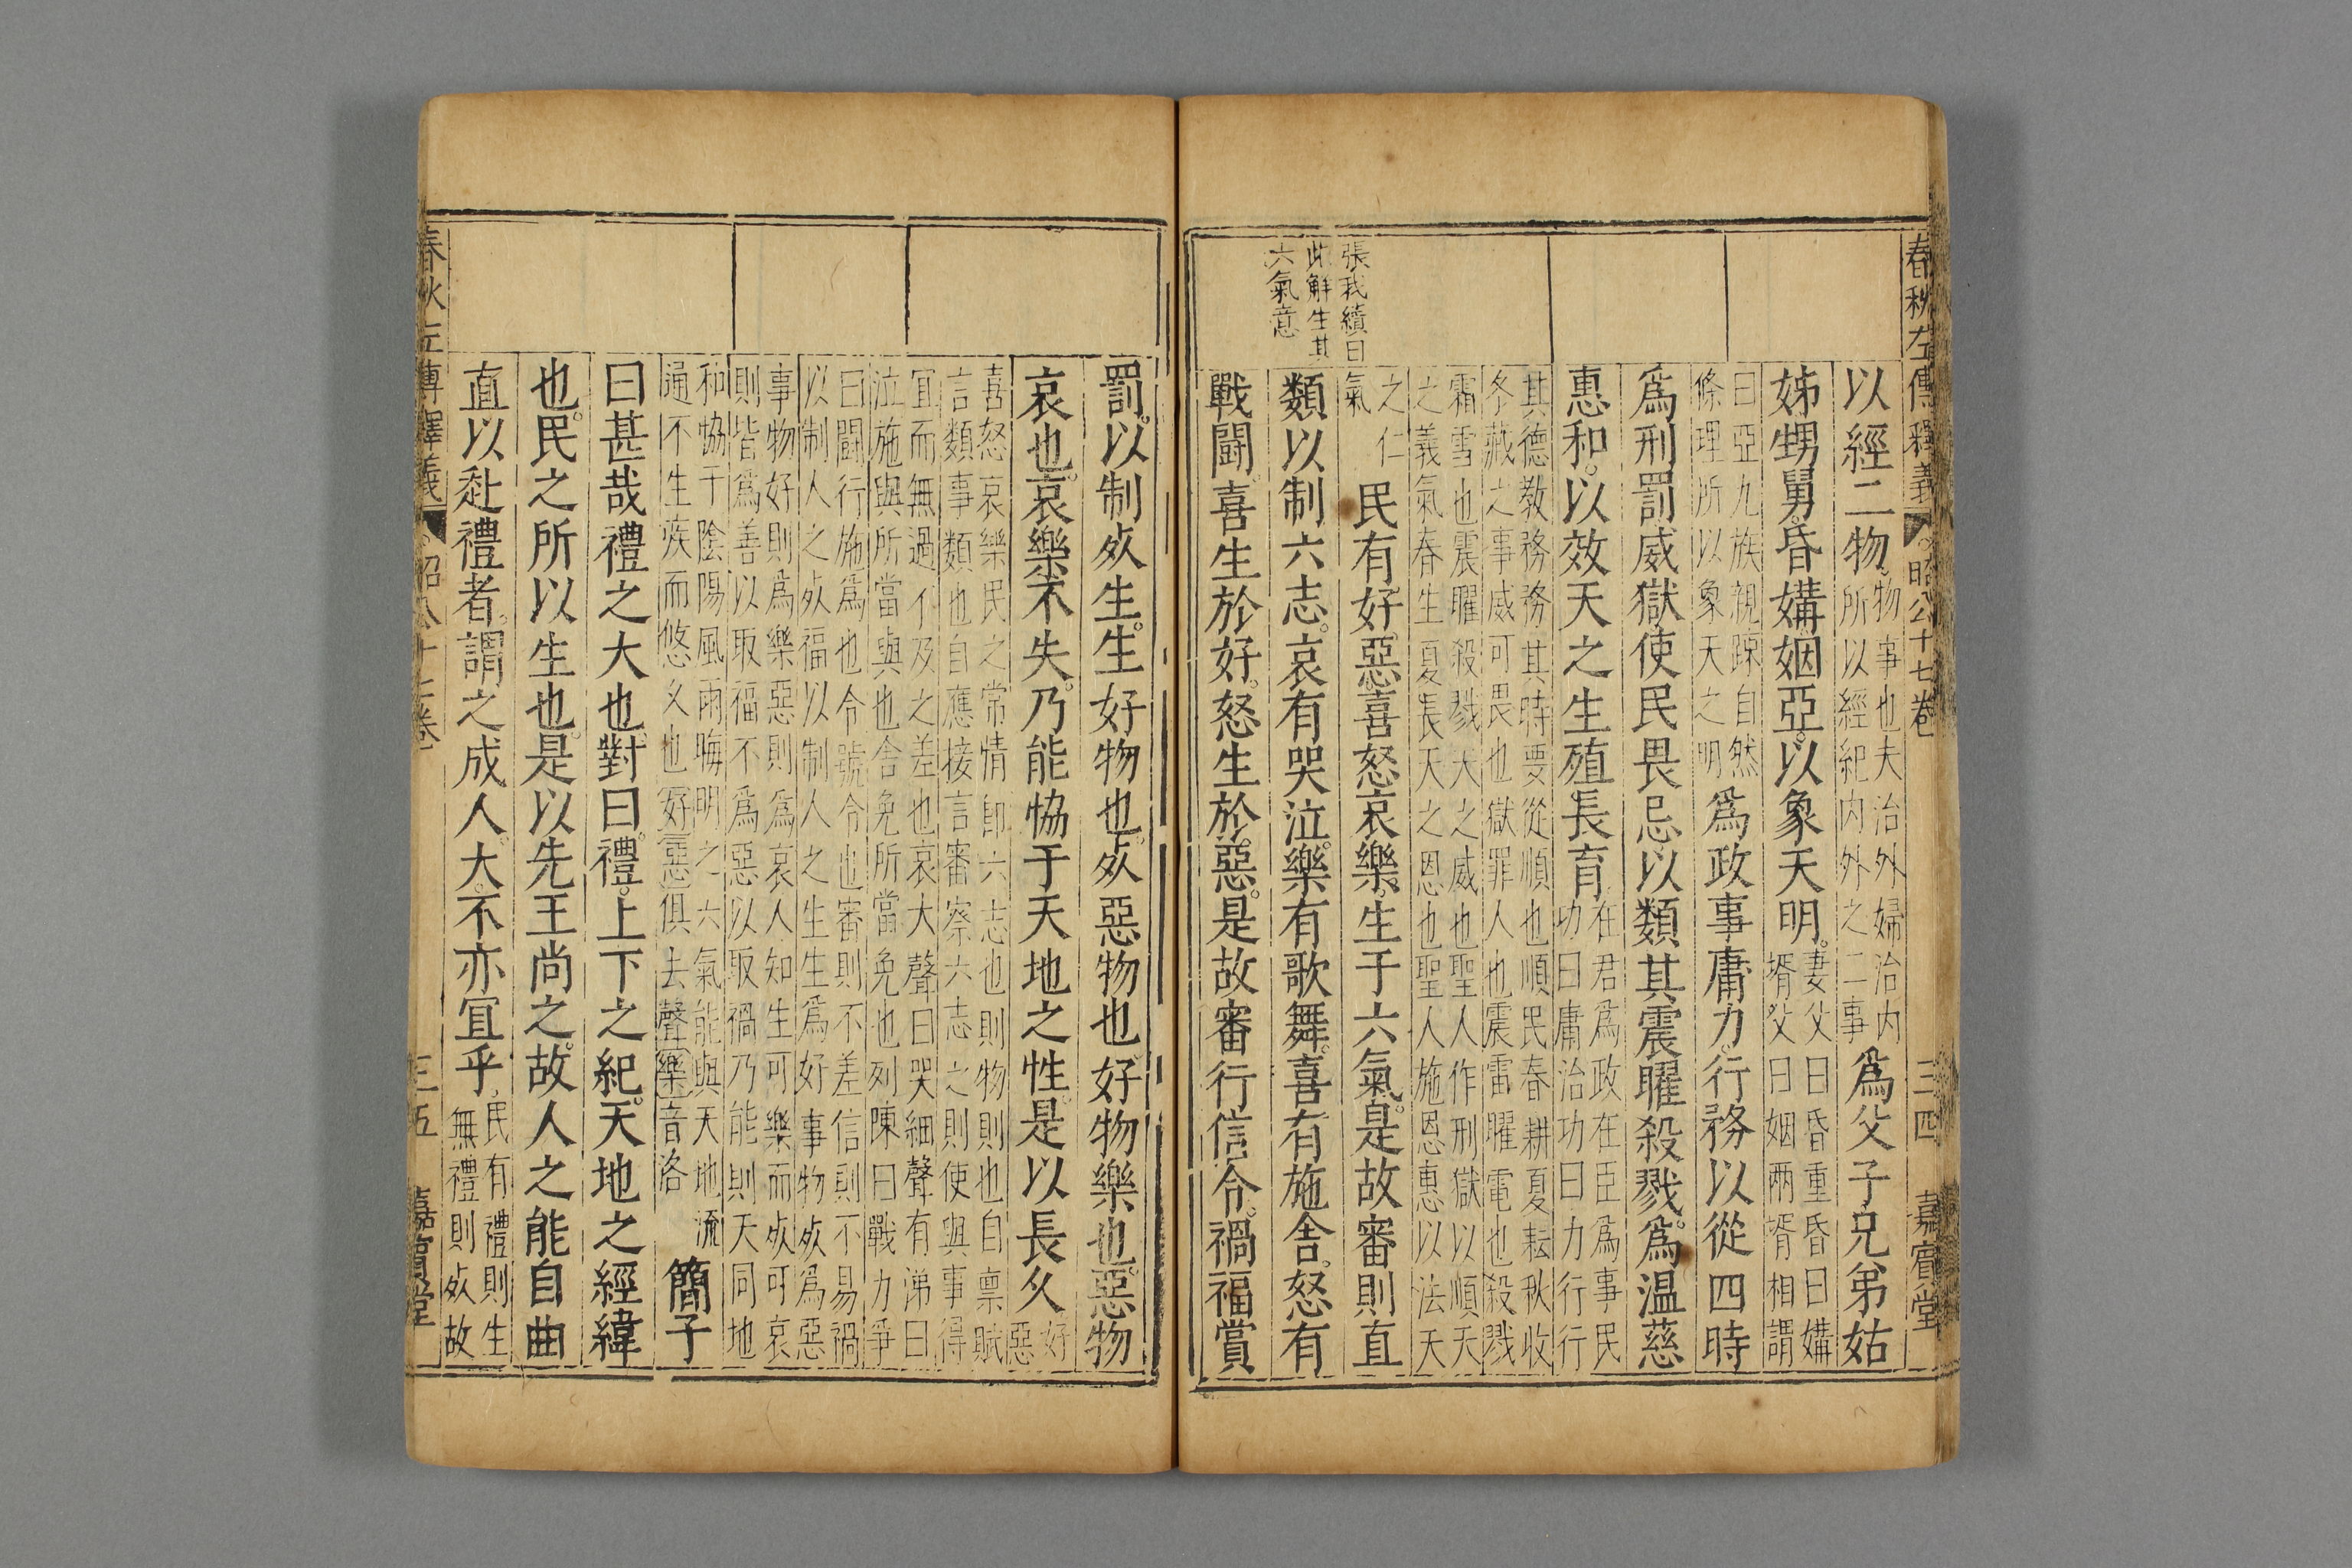 春秋左傳釋義 昭公十七卷 三四 嘉賓堂
以經二物物事也夫治外婦治内所以經紀内外之二事爲父子兄弟姑
姊甥舅昏媾姻亞以象天明妻父曰昏重昏曰媾壻父曰姻兩壻相謂
曰亞九族親踈自然條理所以象天之明爲政事庸力行務以從四時
爲刑罰威獄使民畏忌以類其震曜殺戮爲温慈
惠和以效天之生殖長育在君爲政在臣爲事民功曰庸治功曰力行行
其德教務務其時要從順也順民春耕夏耘秋收冬藏之事威可畏也獄罪人也震雷曜電也殺戮
霜雪也震曜殺戮天之威也聖人作刑獄以順天之義氣春生夏長天之恩也聖人施恩惠以法天
張我續曰
此解生其
六氣意
之仁氣民有好惡喜怒哀樂生于六氣是故審則直
類以制六志哀有哭泣樂有歌舞喜有施舍怒有
戰鬪喜生於好怒生於惡是故審行信令禍福賞
罰以制死生生好物也死惡物也好物樂也惡物
哀也哀樂不失乃能恊于天地之性是以長久好惡
喜怒哀樂民之常情卽六志也則物則也自禀賦言類事類也自應接言審察六志之則使與事得
宜而無過不及之差也哀大聲曰哭細聲有涕曰泣施與所當與也舍免所當免也列陳曰戰力爭
曰鬪行施爲也令號令也審則不差信則不易禍以制人之死福以制人之生生爲好事物死爲惡
事物好則爲樂惡則爲哀人知生可樂而死可哀則皆爲善以取福不爲惡以取禍乃能則天同地
和恊于陰陽風雨晦明之六氣能與天地流通不生疾而悠久也好惡俱去聲樂音洛簡子
曰甚哉禮之大也對曰禮上下之紀天地之經緯
也民之所以生也是以先王尚之故人之能自曲
直以赴禮者謂之成人大不亦宜乎民有禮則生無禮則死故
春秋左傳釋義 昭公十七卷 三五 嘉賓堂